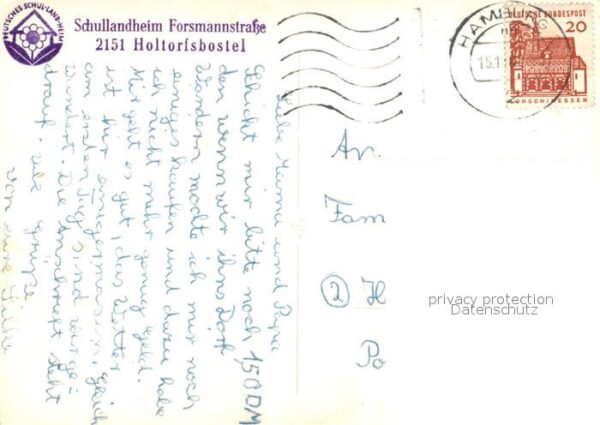 DEUTSCHES SCHUL-LAND-HEIM
Schullandheim Forsmannstraße
2151 Holtorfsbostel
HAMBURG
15.1
DEUTSCHE BUNDESPOST
20
LORSCH/HESSEN
Liebe Mama und Papa
Schickt mir bitte noch 1,50 DM
denn wenn wir ins Dorf
wandern möchte ich mir noch
einiges kaufen und dazu habe
ich nicht mehr genug Geld.
Mir geht es gut, das Wetter
ist hier einigermassen, gleich
am ersten Tag sind wir ge-
wandert. Die Anschrift steht
drauf. viele Grüße
von eure Silke
An
Fam
2 H
Po
privacy protection
Datenschutz